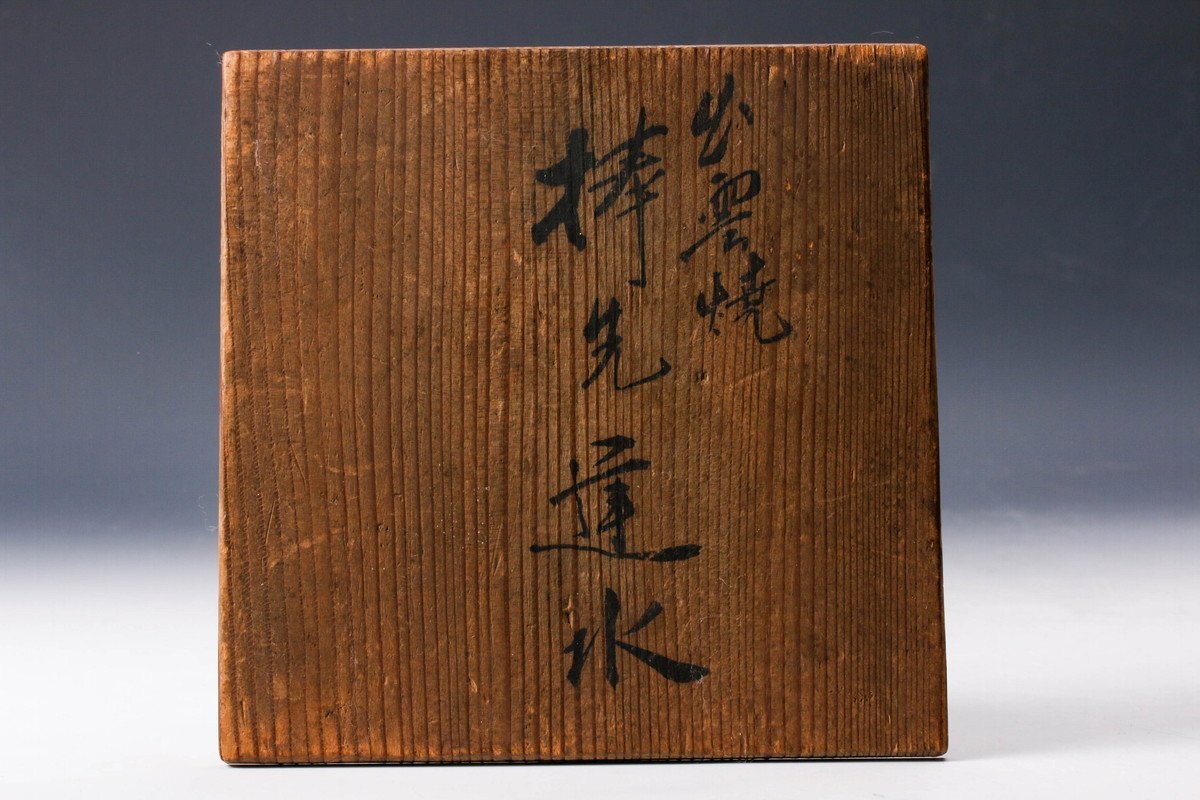 出雲燒
棒先建水